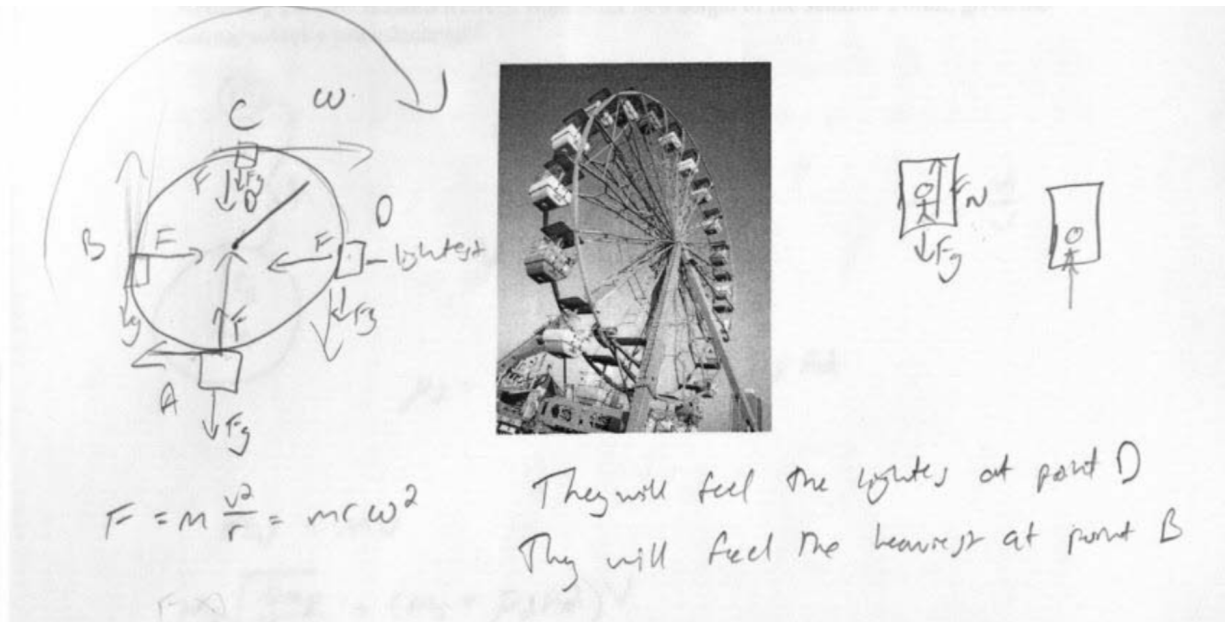 ω
C
F Fg
B F F D - lightest
Fg F Fg
A
Fg
FN
Fg
F = m v²/r = mrω²
They will feel the lightes at point D
They will feel the heaviest at point B